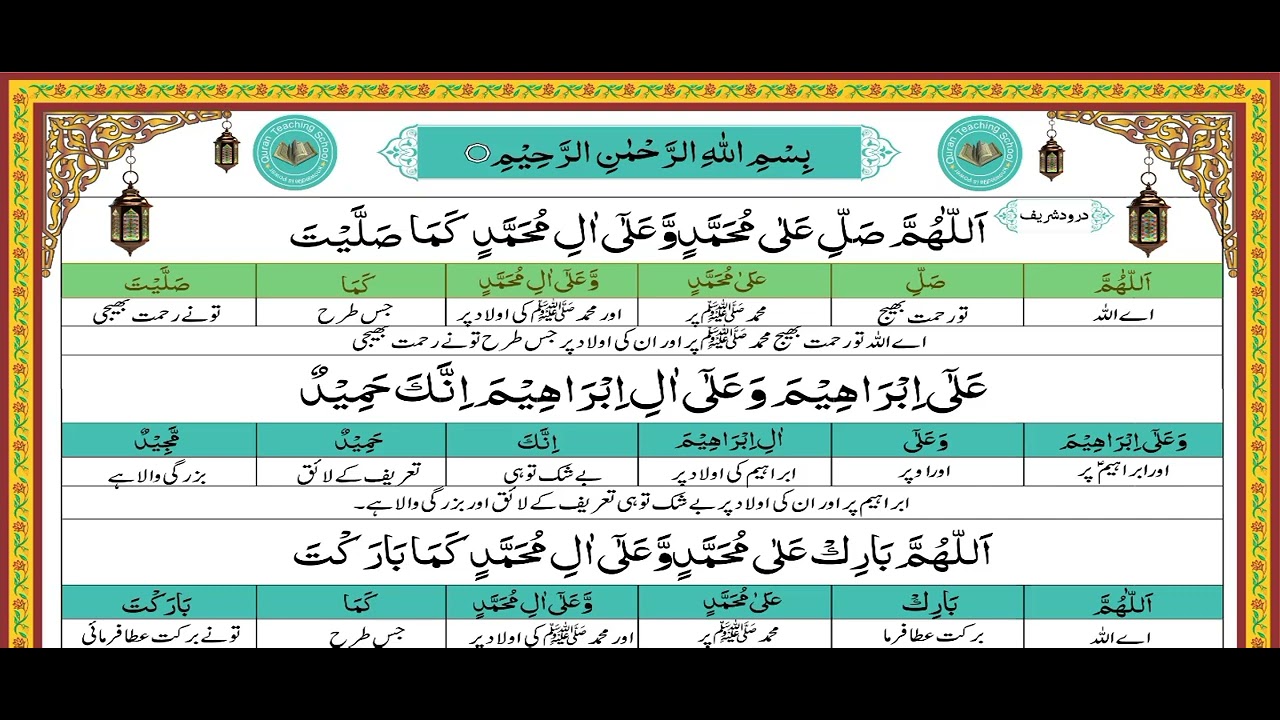 Quran Teaching School
بِسْمِ اللهِ الرَّحْمٰنِ الرَّحِيْمِ
Quran Teaching School
درود شریف
اَللّٰهُمَّ صَلِّ عَلٰى مُحَمَّدٍ وَّعَلٰٓى اٰلِ مُحَمَّدٍ كَمَا صَلَّيْتَ
اَللّٰهُمَّ صَلِّ عَلٰى مُحَمَّدٍ وَّعَلٰٓى اٰلِ مُحَمَّدٍ كَمَا صَلَّيْتَ
اے اللہ تو رحمت بھیج محمد ﷺ پر اور محمد ﷺ کی اولاد پر جس طرح تو نے رحمت بھیجی
اے اللہ تو رحمت بھیج محمد ﷺ پر اور ان کی اولاد پر جس طرح تو نے رحمت بھیجی
عَلٰٓى اِبْرَاهِيْمَ وَعَلٰٓى اٰلِ اِبْرَاهِيْمَ اِنَّكَ حَمِيْدٌ
وَعَلٰٓى اِبْرَاهِيْمَ وَعَلٰٓى اٰلِ اِبْرَاهِيْمَ اِنَّكَ حَمِيْدٌ مَّجِيْدٌ
اور ابراہیمؑ پر اور اوپر ابراہیم کی اولاد پر بے شک تو ہی تعریف کے لائق بزرگی والا ہے
ابراہیم پر اور ان کی اولاد پر بے شک تو ہی تعریف کے لائق اور بزرگی والا ہے۔
اَللّٰهُمَّ بَارِكْ عَلٰى مُحَمَّدٍ وَّعَلٰٓى اٰلِ مُحَمَّدٍ كَمَا بَارَكْتَ
اَللّٰهُمَّ بَارِكْ عَلٰى مُحَمَّدٍ وَّعَلٰٓى اٰلِ مُحَمَّدٍ كَمَا بَارَكْتَ
اے اللہ برکت عطا فرما محمد ﷺ پر اور محمد ﷺ کی اولاد پر جس طرح تو نے برکت عطا فرمائی